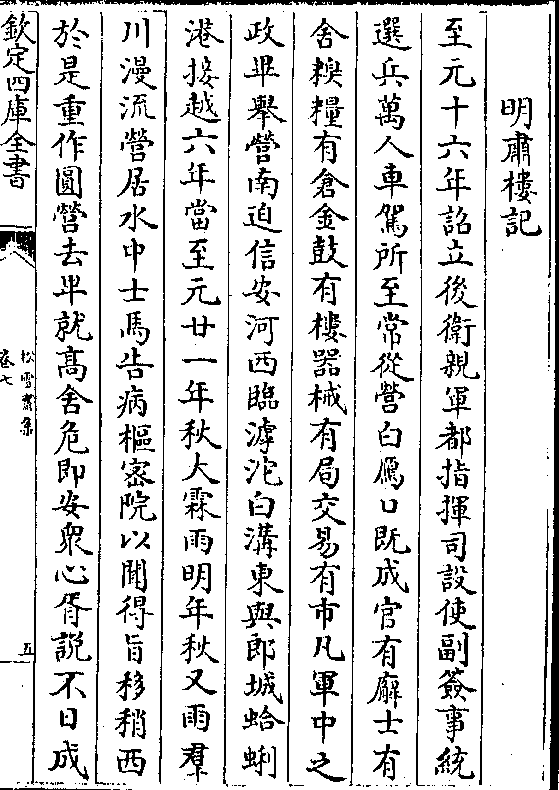 明肅樓記
至元十六年詔立後衛親軍都指揮司設使副簽事統
選兵萬人車駕所至常從營白鴈口既成官有廨士有
舍糗糧有倉金鼓有樓器械有局交易有市凡軍中之
政畢舉營南迫信安河西臨滹沱白溝東與郎城蛤蜊
港接越六年當至元廿一年秋大霖雨明年秋又雨羣
川漫流營居水中士馬告病樞密院以聞得旨移稍西
於是重作圓營去卑就高舍危即安衆心胥説不日成
欽定四庫全書
松雪齋集
卷七
五